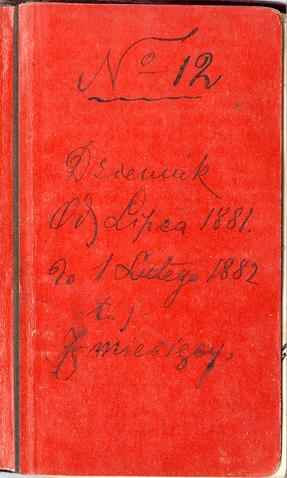 № 12
Dziennik
Od Lipca 1881.
do 1 Lutego 1882
t. j.
7 miesięcy.